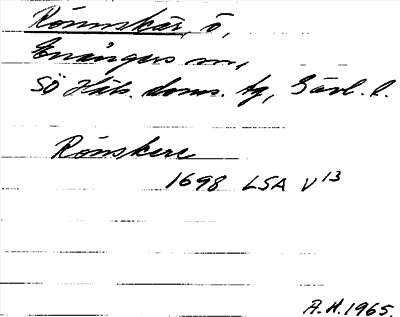 Rönnskär, ö,
Enångers sn,
SÖ Häls. doms. tg, Gävl. l.
Rönskere
1698 LSA V 13
A.H. 1965.